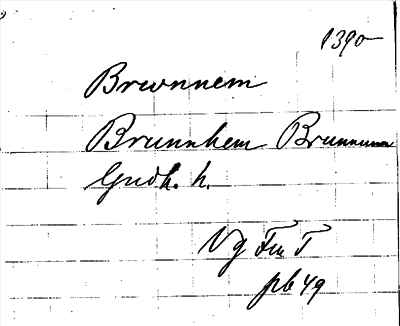 1390
Brwnnem
Brunnhem Brunnum
Gudh. h.
Vg Fu T
pb 49